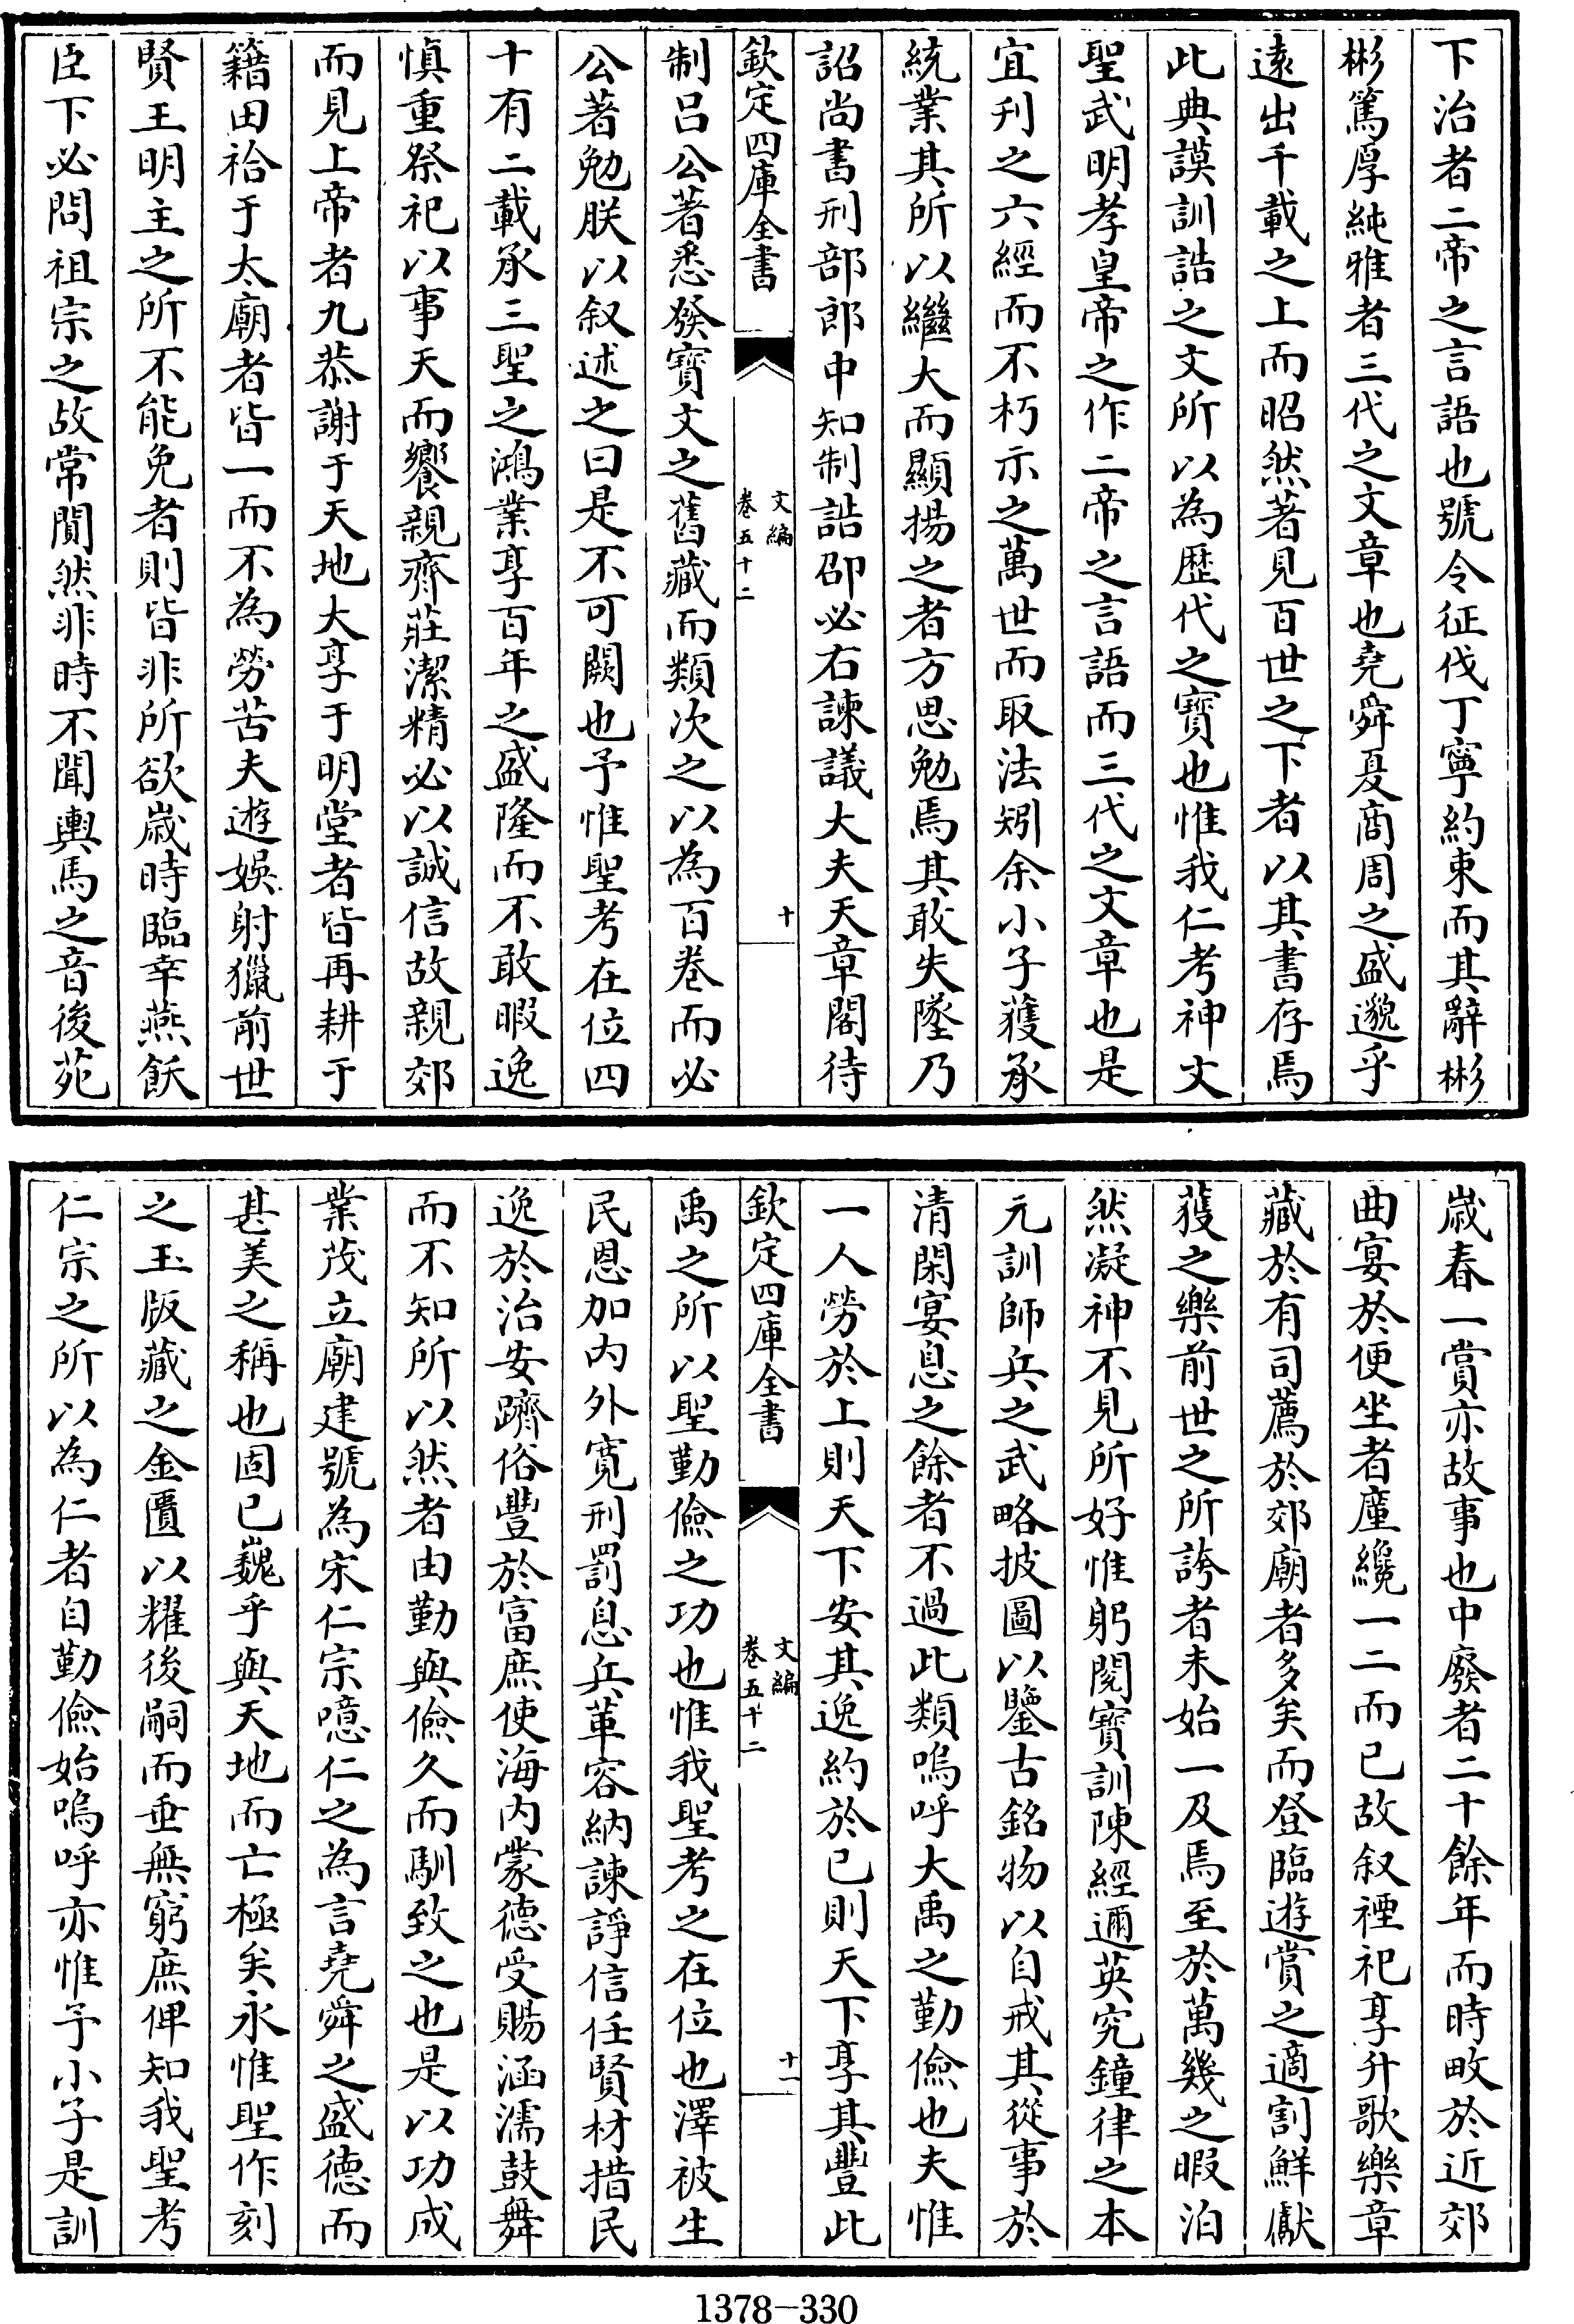 下治者二帝之言語也號令征伐丁寧約束而其辭彬
彬篤厚純雅者三代之文章也堯舜夏商周之盛邈乎
遠出千載之上而昭然著見百世之下者以其書存焉
此典謨訓誥之文所以為歷代之寶也惟我仁考神文
聖武明孝皇帝之作二帝之言語而三代之文章也是
宜刊之六經而不朽示之萬世而取法矧余小子獲承
統業其所以繼大而顯揚之者方思勉焉其敢失墜乃
詔尚書刑部郎中知制誥邵必右諫議大夫天章閣待
欽定四庫全書
文編
卷五十二
十
制呂公著悉發寶文之舊藏而類次之以為百卷而必
公著勉朕以叙述之曰是不可闕也予惟聖考在位四
十有二載承三聖之鴻業享百年之盛隆而不敢暇逸
慎重祭祀以事天而饗親齊莊潔精必以誠信故親郊
而見上帝者九恭謝于天地大享于明堂者皆再耕于
籍田祫于太廟者皆一而不為勞苦夫遊娛射獵前世
賢王明主之所不能免者則皆非所欲歲時臨幸燕飫
臣下必問祖宗之故常閴然非時不聞輿馬之音後苑
歲春一賞亦故事也中廢者二十餘年而時畋於近郊
曲宴於便坐者廑纔一二而已故叙禋祀享升歌樂章
藏於有司薦於郊廟者多矣而登臨遊賞之適割鮮獻
獲之樂前世之所誇者未始一及焉至於萬幾之暇泊
然凝神不見所好惟躬閱寶訓陳經邇英究鐘律之本
元訓師兵之武略披圖以鑒古銘物以自戒其從事於
清閑宴息之餘者不過此類嗚呼大禹之勤儉也夫惟
一人勞於上則天下安其逸約於已則天下享其豐此
欽定四庫全書
文編
卷五十二
十一
禹之所以聖勤儉之功也惟我聖考之在位也澤被生
民恩加內外寬刑罰息兵革容納諫諍信任賢材措民
逸於治安躋俗豐於富庶使海內蒙德受賜涵濡鼓舞
而不知所以然者由勤與儉久而馴致之也是以功成
業茂立廟建號為宋仁宗噫仁之為言堯舜之盛德而
甚美之稱也固已巍乎與天地而亡極矣永惟聖作刻
之玉版藏之金匱以耀後嗣而垂無窮庶俾知我聖考
仁宗之所以為仁者自勤儉始嗚呼亦惟予小子是訓
1378-330